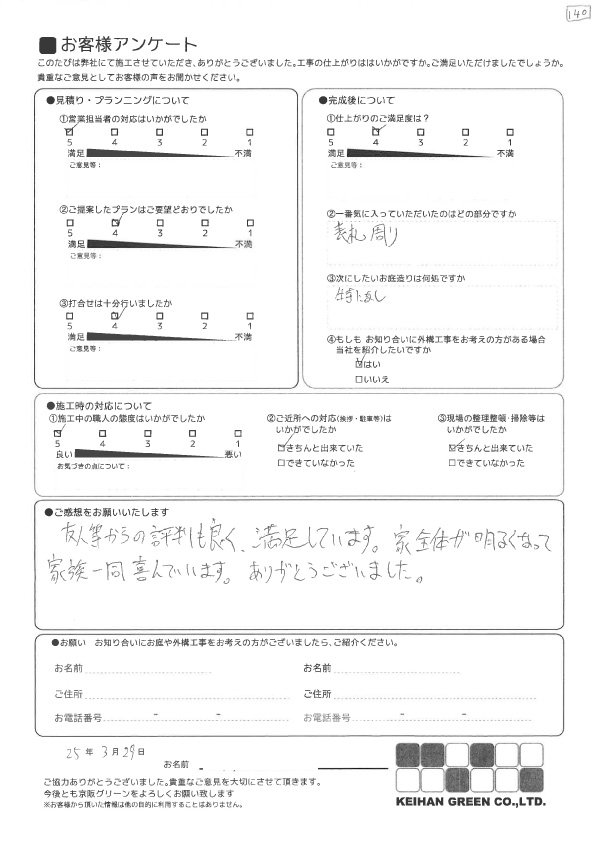 140
■お客様アンケート
このたびは弊社にて施工させていただき、ありがとうございました。工事の仕上がりははいかがですか。ご満足いただけましたでしょうか。
貴重なご意見としてお客様の声をお聞かせください。
●見積り・プランニングについて
①営業担当者の対応はいかがでしたか
5 4 3 2 1
満足 不満
ご意見等：
②ご提案したプランはご要望どおりでしたか
5 4 3 2 1
満足 不満
ご意見等：
③打合せは十分行いましたか
5 4 3 2 1
満足 不満
ご意見等：
●完成後について
①仕上がりのご満足度は？
5 4 3 2 1
満足 不満
②一番気に入っていただいたのはどの部分ですか
表札周り
③次にしたいお庭造りは何処ですか
特になし
④もしも お知り合いに外構工事をお考えの方がある場合
当社を紹介したいですか
☑はい
□いいえ
●施工時の対応について
①施工中の職人の態度はいかがでしたか
5 4 3 2 1
良い 悪い
お気づきの点について：
②ご近所への対応(挨拶・駐車等)は
いかがでしたか
☑きちんと出来ていた
□できていなかった
③現場の整理整頓・掃除等は
いかがでしたか
☑きちんと出来ていた
□できていなかった
●ご感想をお願いいたします
友人等からの評判も良く、満足しています。家全体が明るくなって
家族一同喜んでいます。ありがとうございました。
●お願い お知り合いにお庭や外構工事をお考えの方がございましたら、ご紹介ください。
お名前 お名前
ご住所 ご住所
お電話番号 - - お電話番号 - -
25年3月29日
お名前
ご協力ありがとうございました。貴重なご意見を大切にさせて頂きます。
今後とも京阪グリーンをよろしくお願い致します
※お客様から頂いた情報は他の目的に利用することはありません。
KEIHAN GREEN CO.,LTD.